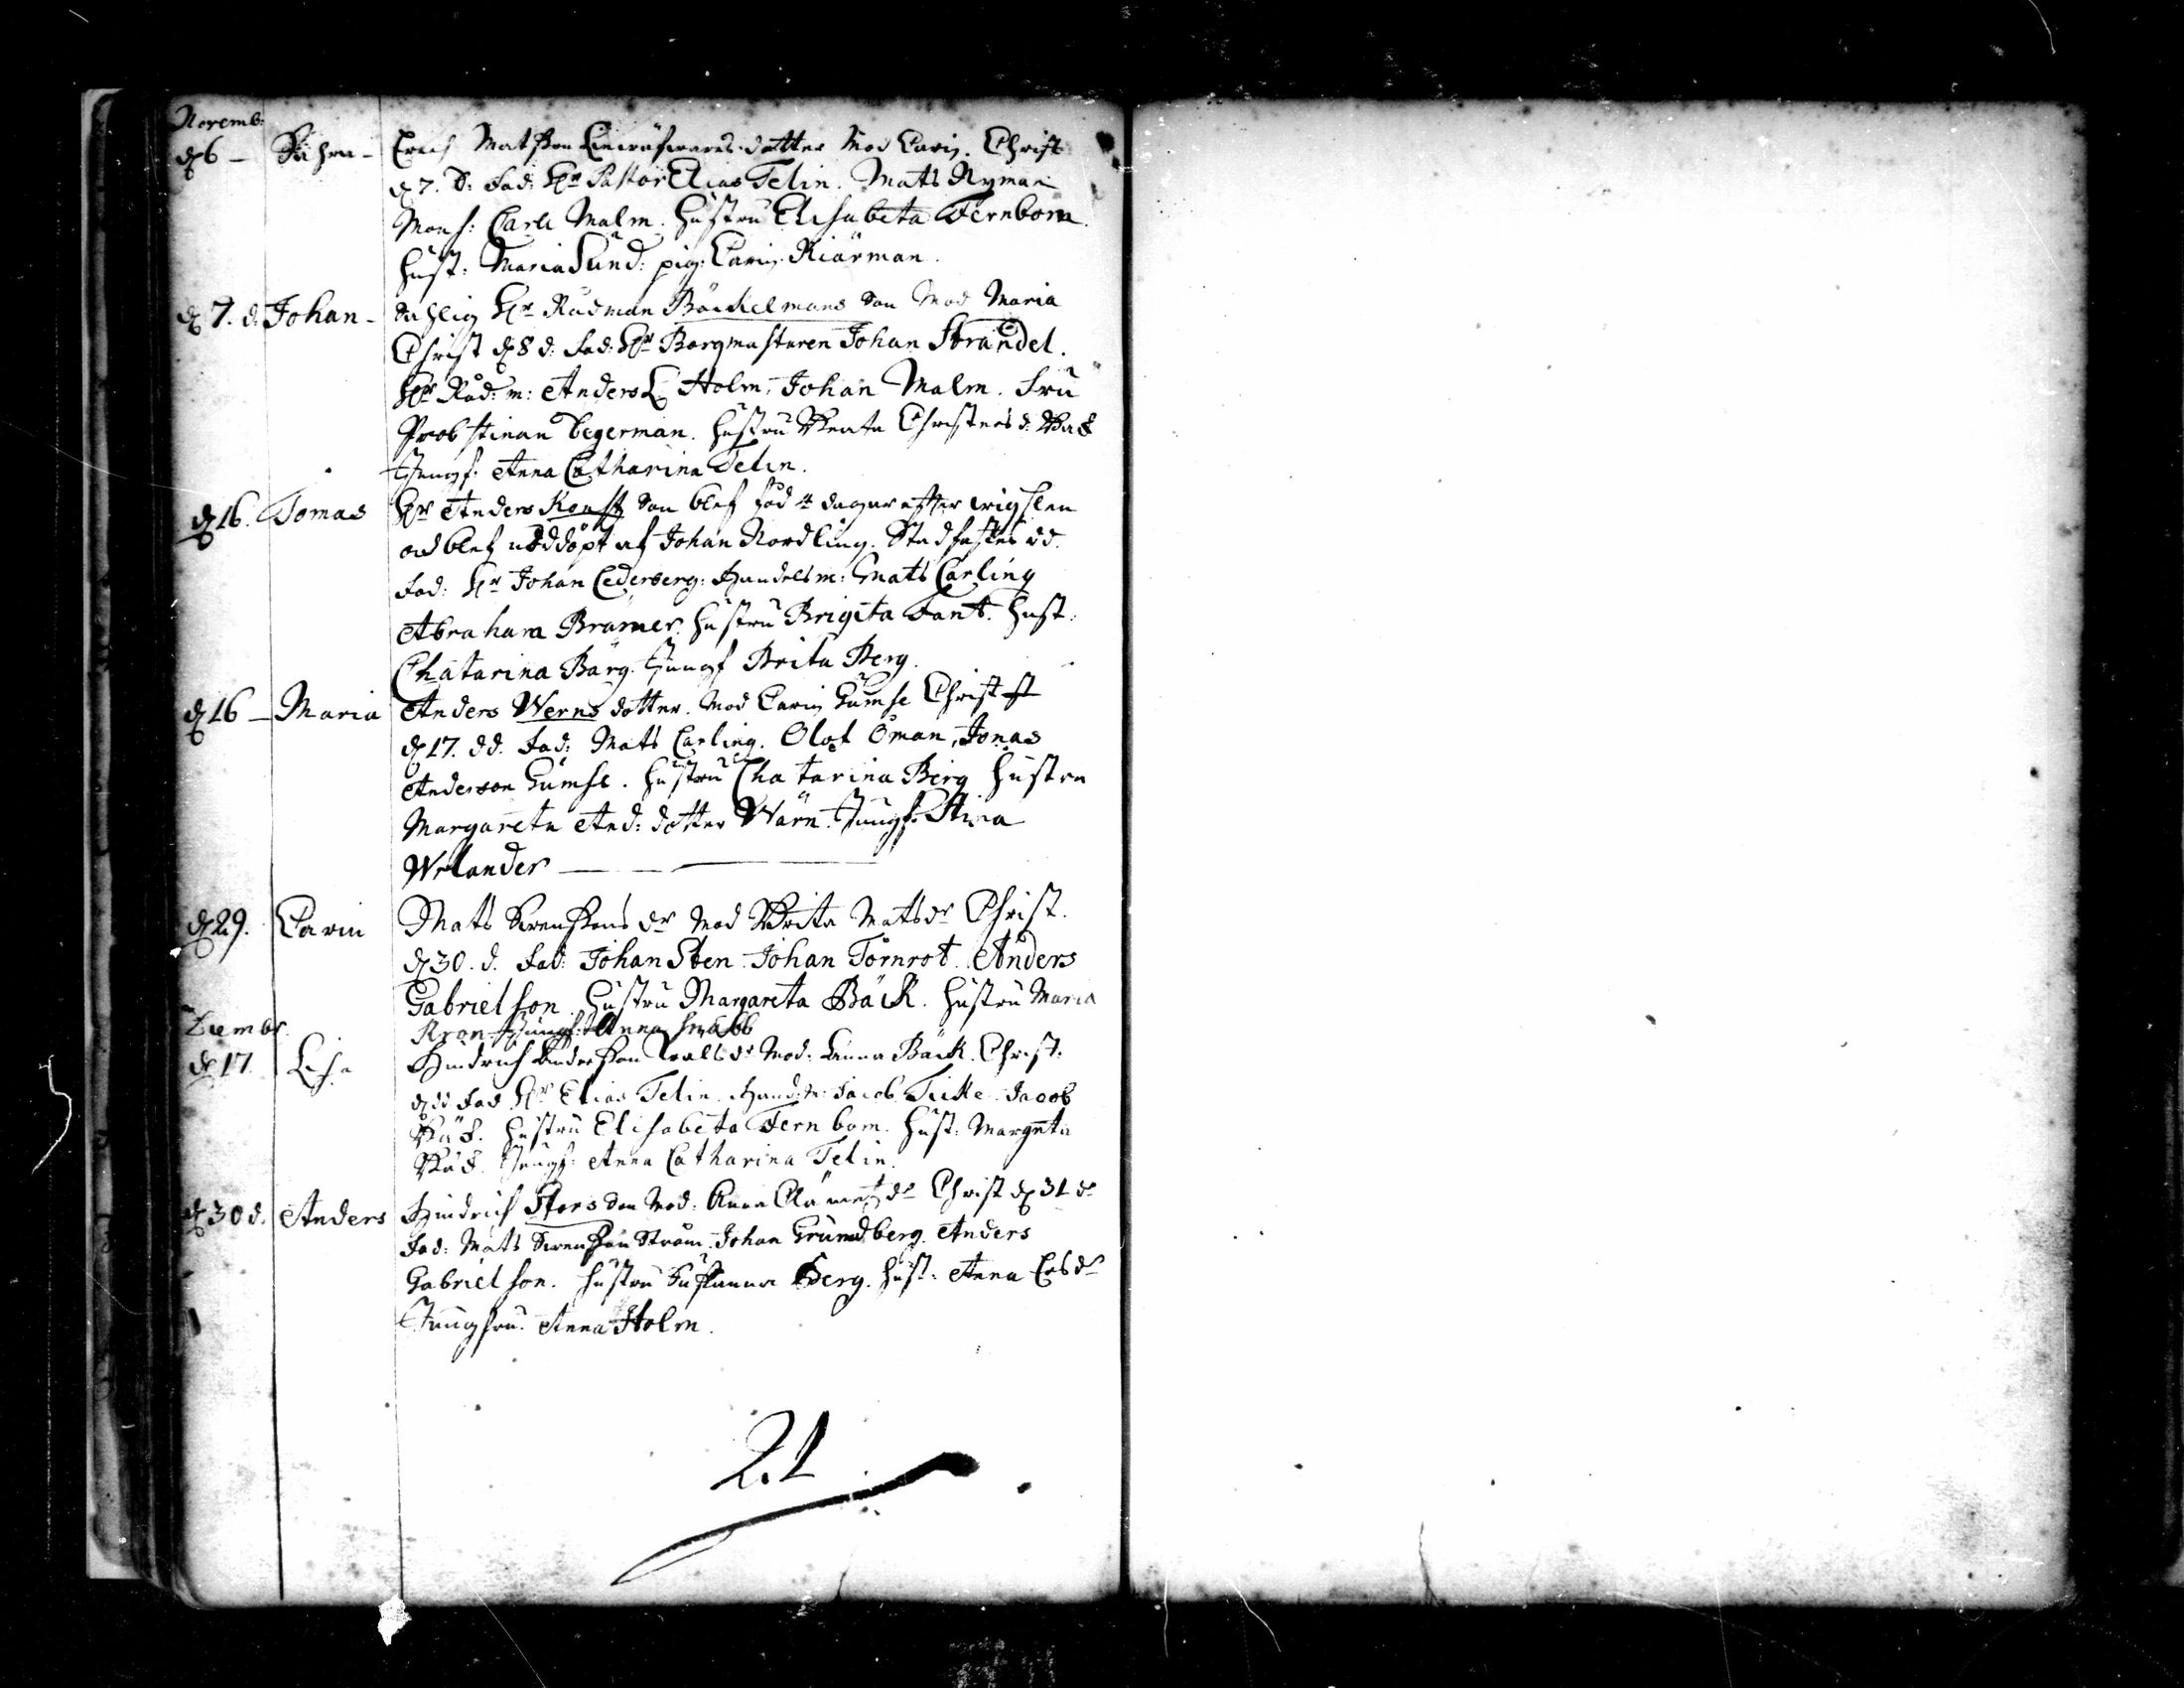 Novemb:
d 6 - Erich Matsson Linwäfwares dotter Mod Carin. Christ
d 7. d: Fad: Hr Pastor Elias Telin. Mats Nyman
Mons: Carl Malm. Hustru Elisabeta Fernbom.
Hust: Maria Lund: pig: Carin Kiärman.
d 7. d. Johan - Sahlig Hr Rådman Bäckelmans Son Mod Maria
Christ d 8 d: Fad: Hr Borgmästaren Johan Strandel.
Hr Råd: m: Anders L Holm, Johan Malm. Fru
Probstinan Begerman. Hustru Beata Christers d:
Jungf: Anna Catharina Telin.
d 16. Tomas Hr Anders Konst Son blef född 4 dagar efter
och blef nöddöpt af Johan Nordling. Stadfästes dd.
Fad: Hr Johan Cederberg: Handelsm: Mats Carling
Abraham Bramer. Hustru Brigita Fant. Hust:
Chatarina Bärg. Jungf Brita Berg.
d 16 - Maria Anders Werns dotter. Mod Carin Gumse Christ
d 17. dd. Fad: Mats Carling. Olof Öman, Jonas
Anderson Gumse. Hustru Chatarina Berg Hustru
Margareta And: dotter Wärn. Jungf: Stina
Welander
d 29. Carin Mats Swenssons dr Mod Brita Matsdr Christ.
d 30. d. Fad: Johan Sten. Johan Törnrot. Anders
Gabrielson. Hustru Margareta Bäck. Hustru Maria
Kron. Jungf: Anna Snabb
Decembr.
d 17. Lisa Hindrich Andersson dr Mod: Anna Bäck. Christ:
d dd Fad Hr Elias Telin. Hand: m: Jacob Jacob
Bäck. Hustru Elisabeta Fernbom. Hust: Margreta
Bäck. Jungf: Anna Catharina Telin.
d 30 d. Anders Hindrich Stors Son Mod: Anna Clämetz dr Christ d 31 d:
Fad: Mats Swensson Ström. Johan Grundberg. Anders
Gabrielson. Hustru Susanna Berg. Hust: Anna
Jungfru. Anna Holm.
21